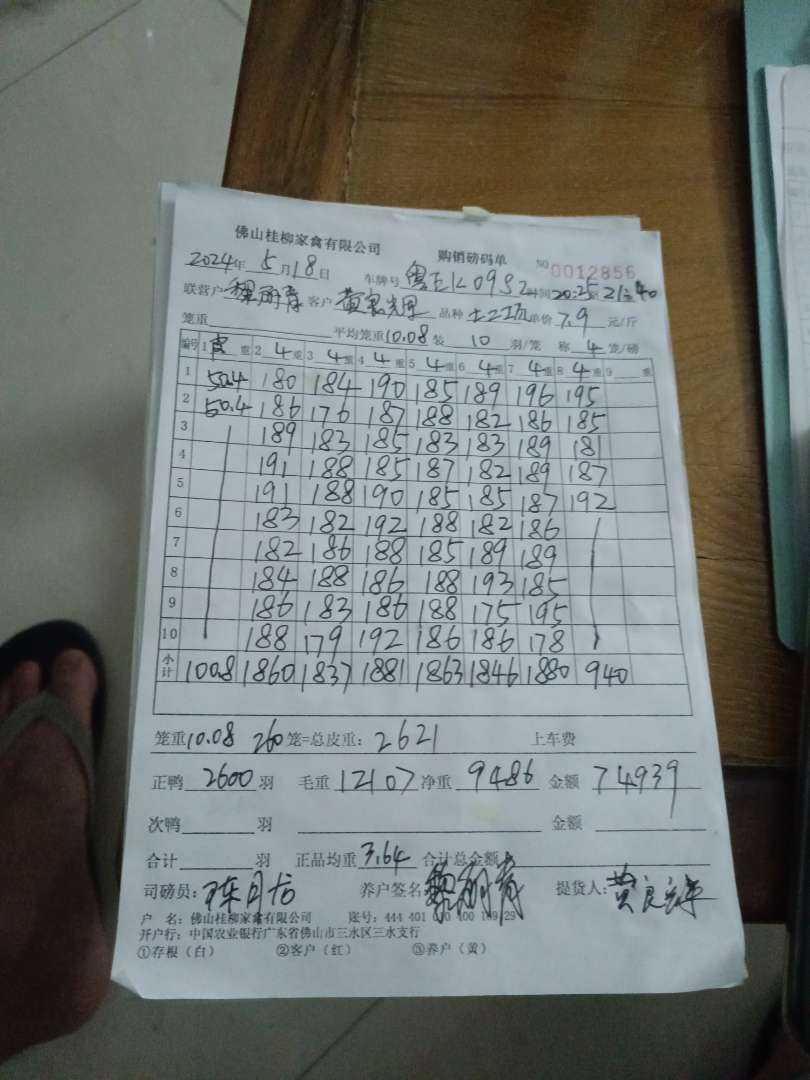 佛山桂柳家禽有限公司 购销磅码单 NO 0012856
2024年 5月18日 车牌号 粤E K09S2 时间 20:25至21:40
联营户 黎丽青 客户 黄良 品种 单价 7.9 元/斤
笼重 平均笼重 10.08 装 10 羽/笼 称 4 笼/磅
编号 1 皮 重 2 4 重 3 4 重 4 4 重 5 4 重 6 4 重 7 4 重 8 4 重 9 重
1 50.4 180 184 190 185 189 196 195
2 50.4 186 176 187 188 182 186 185
3 189 183 185 183 183 189 181
4 191 188 185 187 182 189 187
5 191 188 190 185 185 187 192
6 183 182 192 188 182 186
7 182 186 188 185 189 189
8 184 188 186 188 193 185
9 186 183 186 188 175 195
10 188 179 192 186 186 178
小计 100.8 1860 1837 1881 1863 1846 1880 940
笼重 10.08 260 笼=总皮重: 2621 上车费
正鸭 2600 羽 毛重 12107 净重 9486 金额 74939
次鸭 羽 金额
合计 羽 正品均重 3.64 合计总金额
司磅员: 养户签名: 黎丽青 提货人: 黄良
户 名: 佛山桂柳家禽有限公司 账号: 444 401
开户行: 中国农业银行广东省佛山市三水区三水支行
①存根（白） ②客户（红） ③养户（黄）